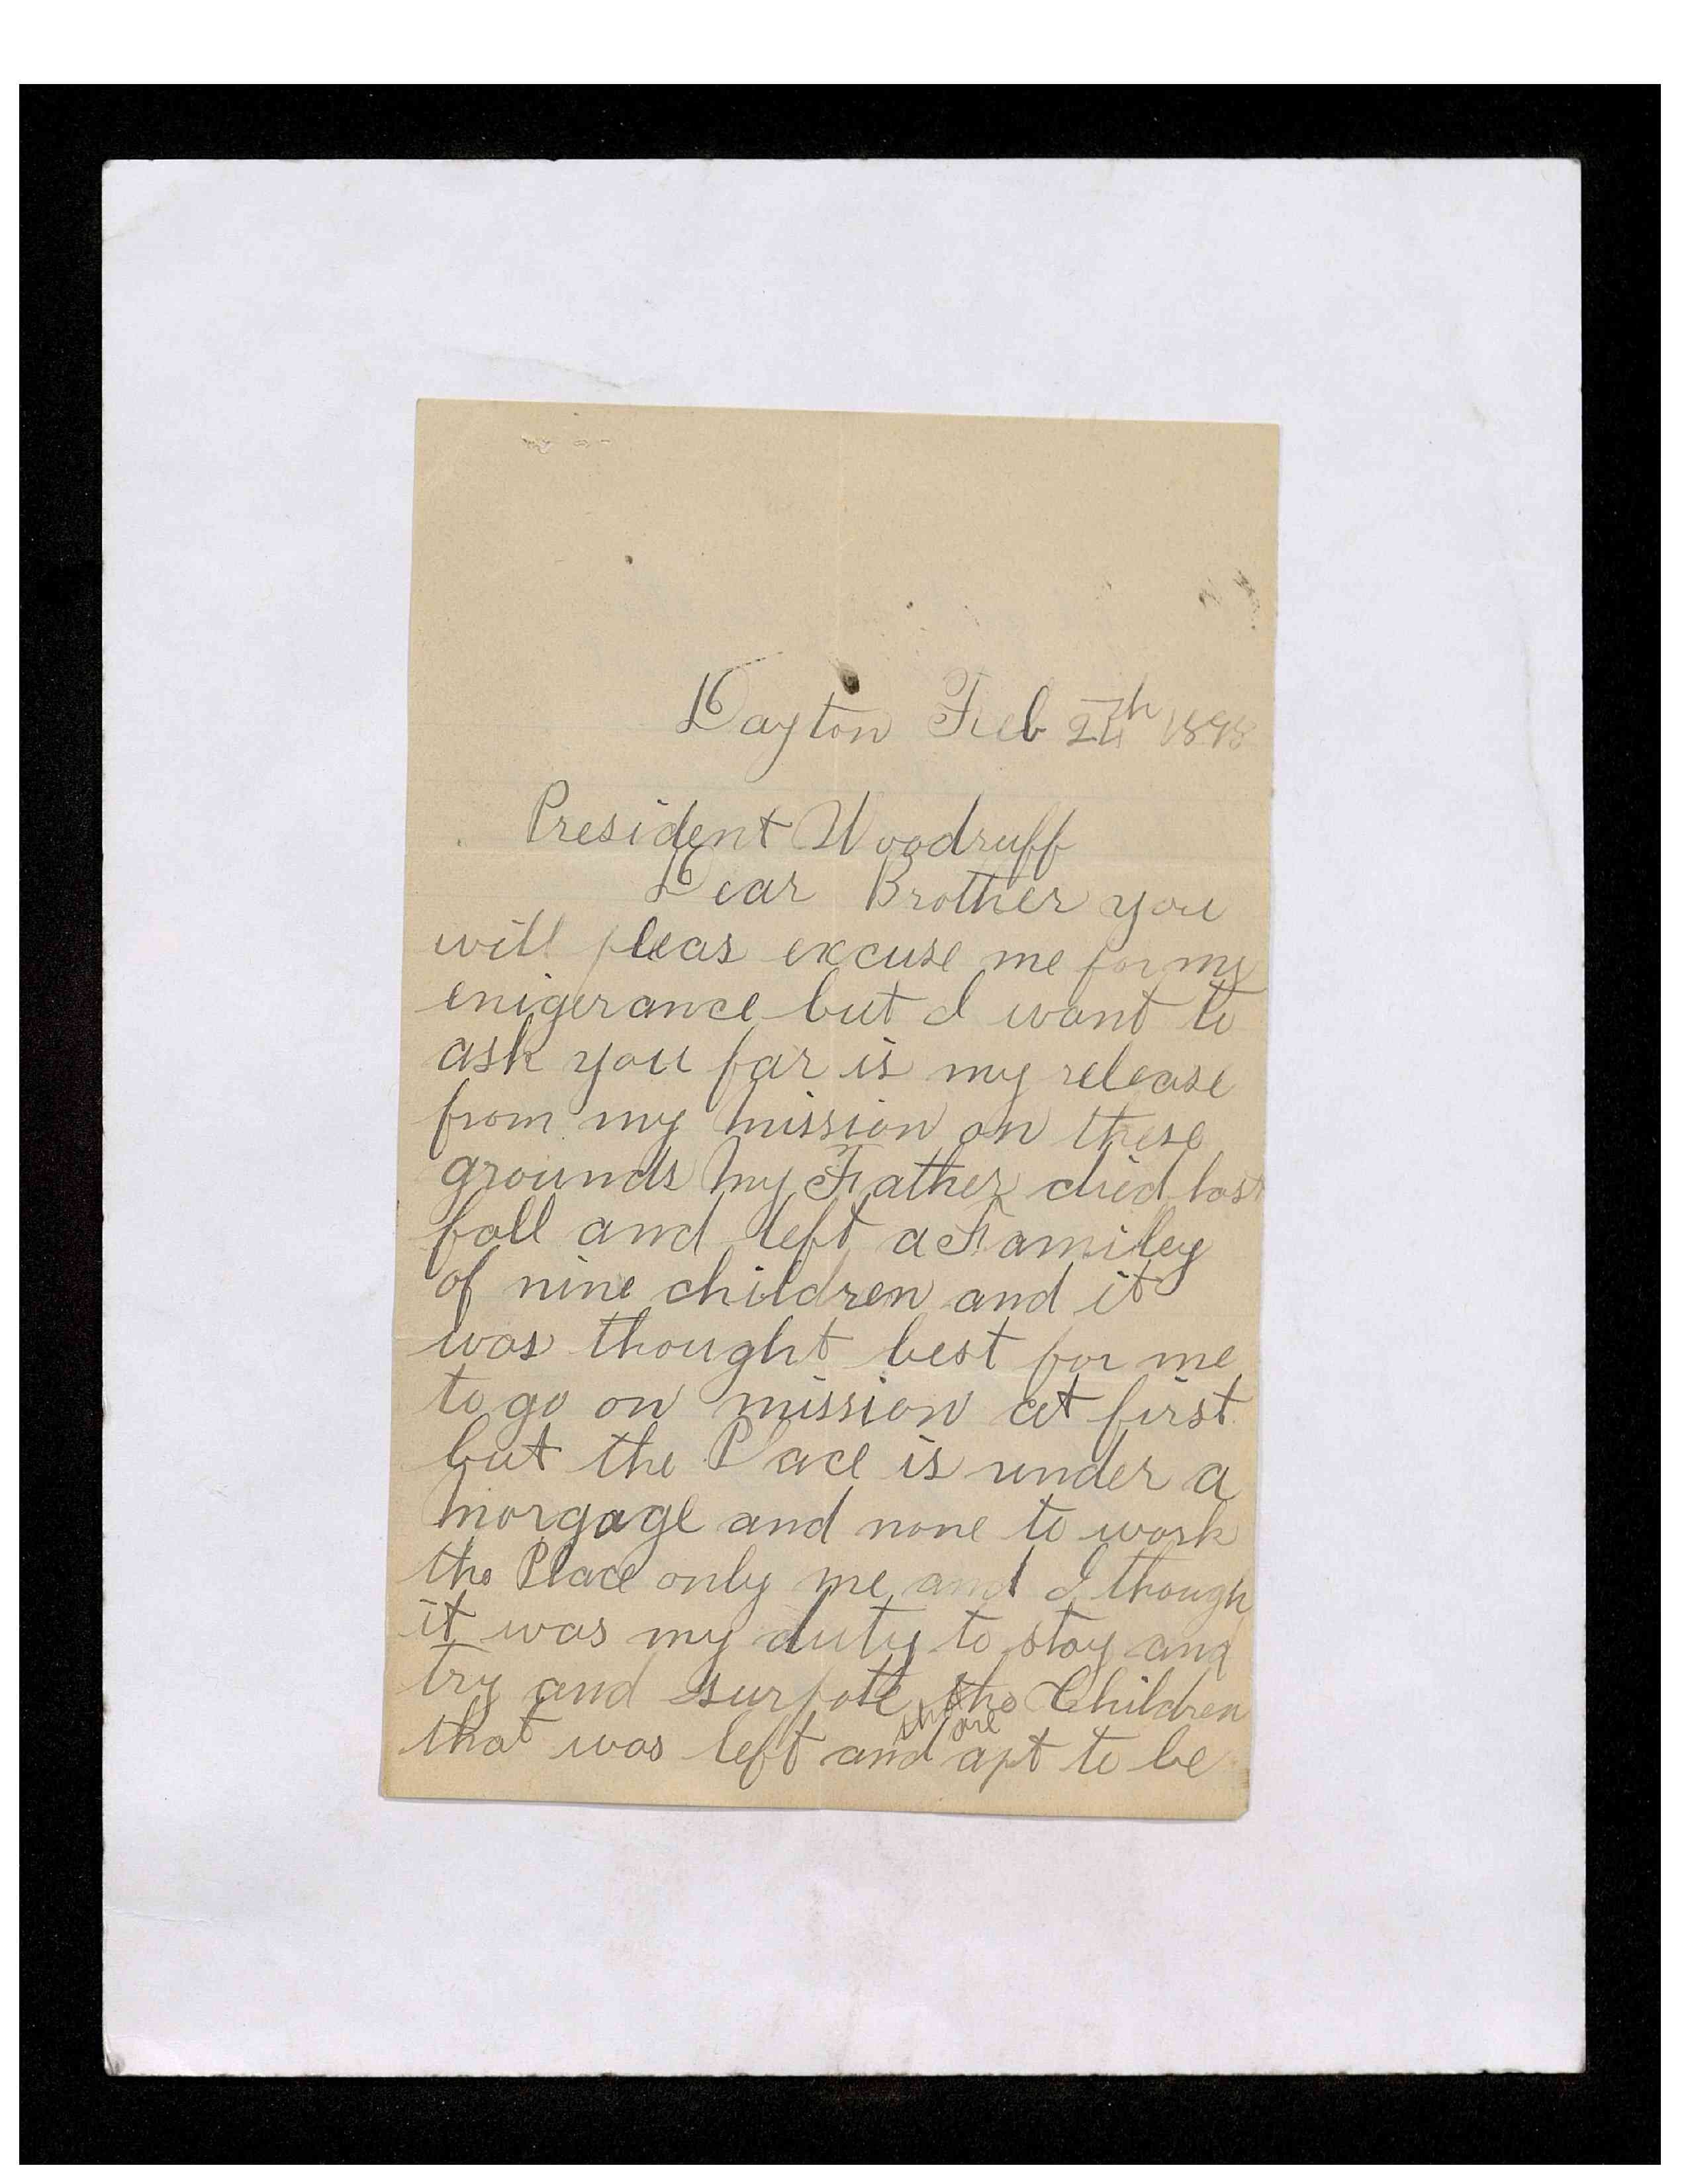 Dayton Feb 24th 1898
President Woodruff
Dear Brother you
will pleas excuse me for my
enigerance but I want to
ask you for is my release
from my mission on these
grounds My Father died last
fall and left a Familey
of nine children and it
was thought best for me
to go on mission at first
but the Place is under a
morgage and none to work
the Place only me and I though
it was my duty to stay and
try and surpote the Children
that was left and apt to be
tha are